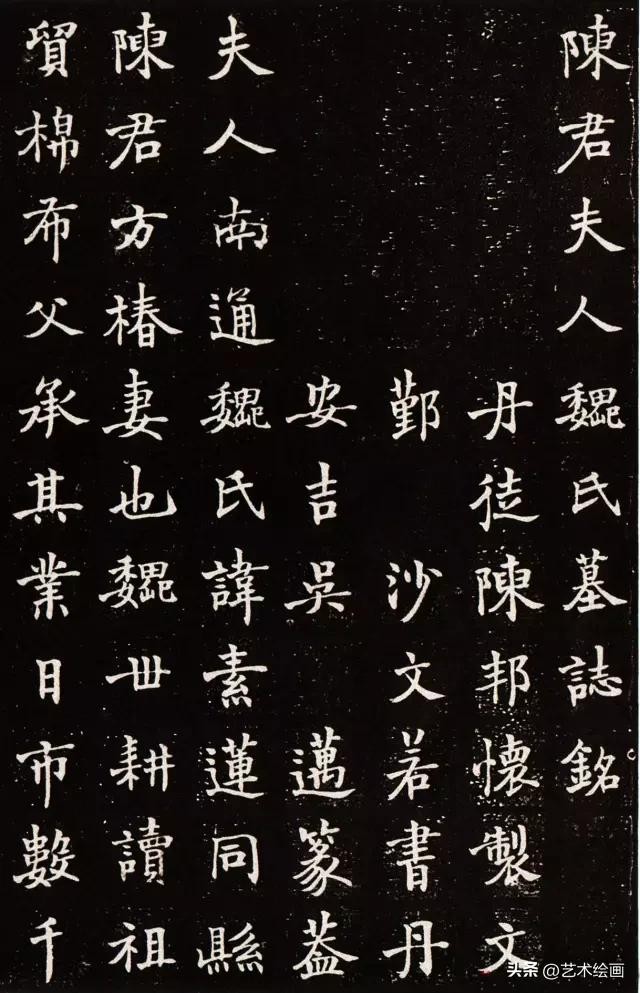 陳君夫人魏氏墓誌銘
丹徒陳邦懷製文
鄞 沙文若書丹
安吉吳 邁篆蓋
夫人南通魏氏諱素蓮同縣
陳君方椿妻也魏世耕讀祖
貿棉布父承其業日市數千
头条 @艺术绘画